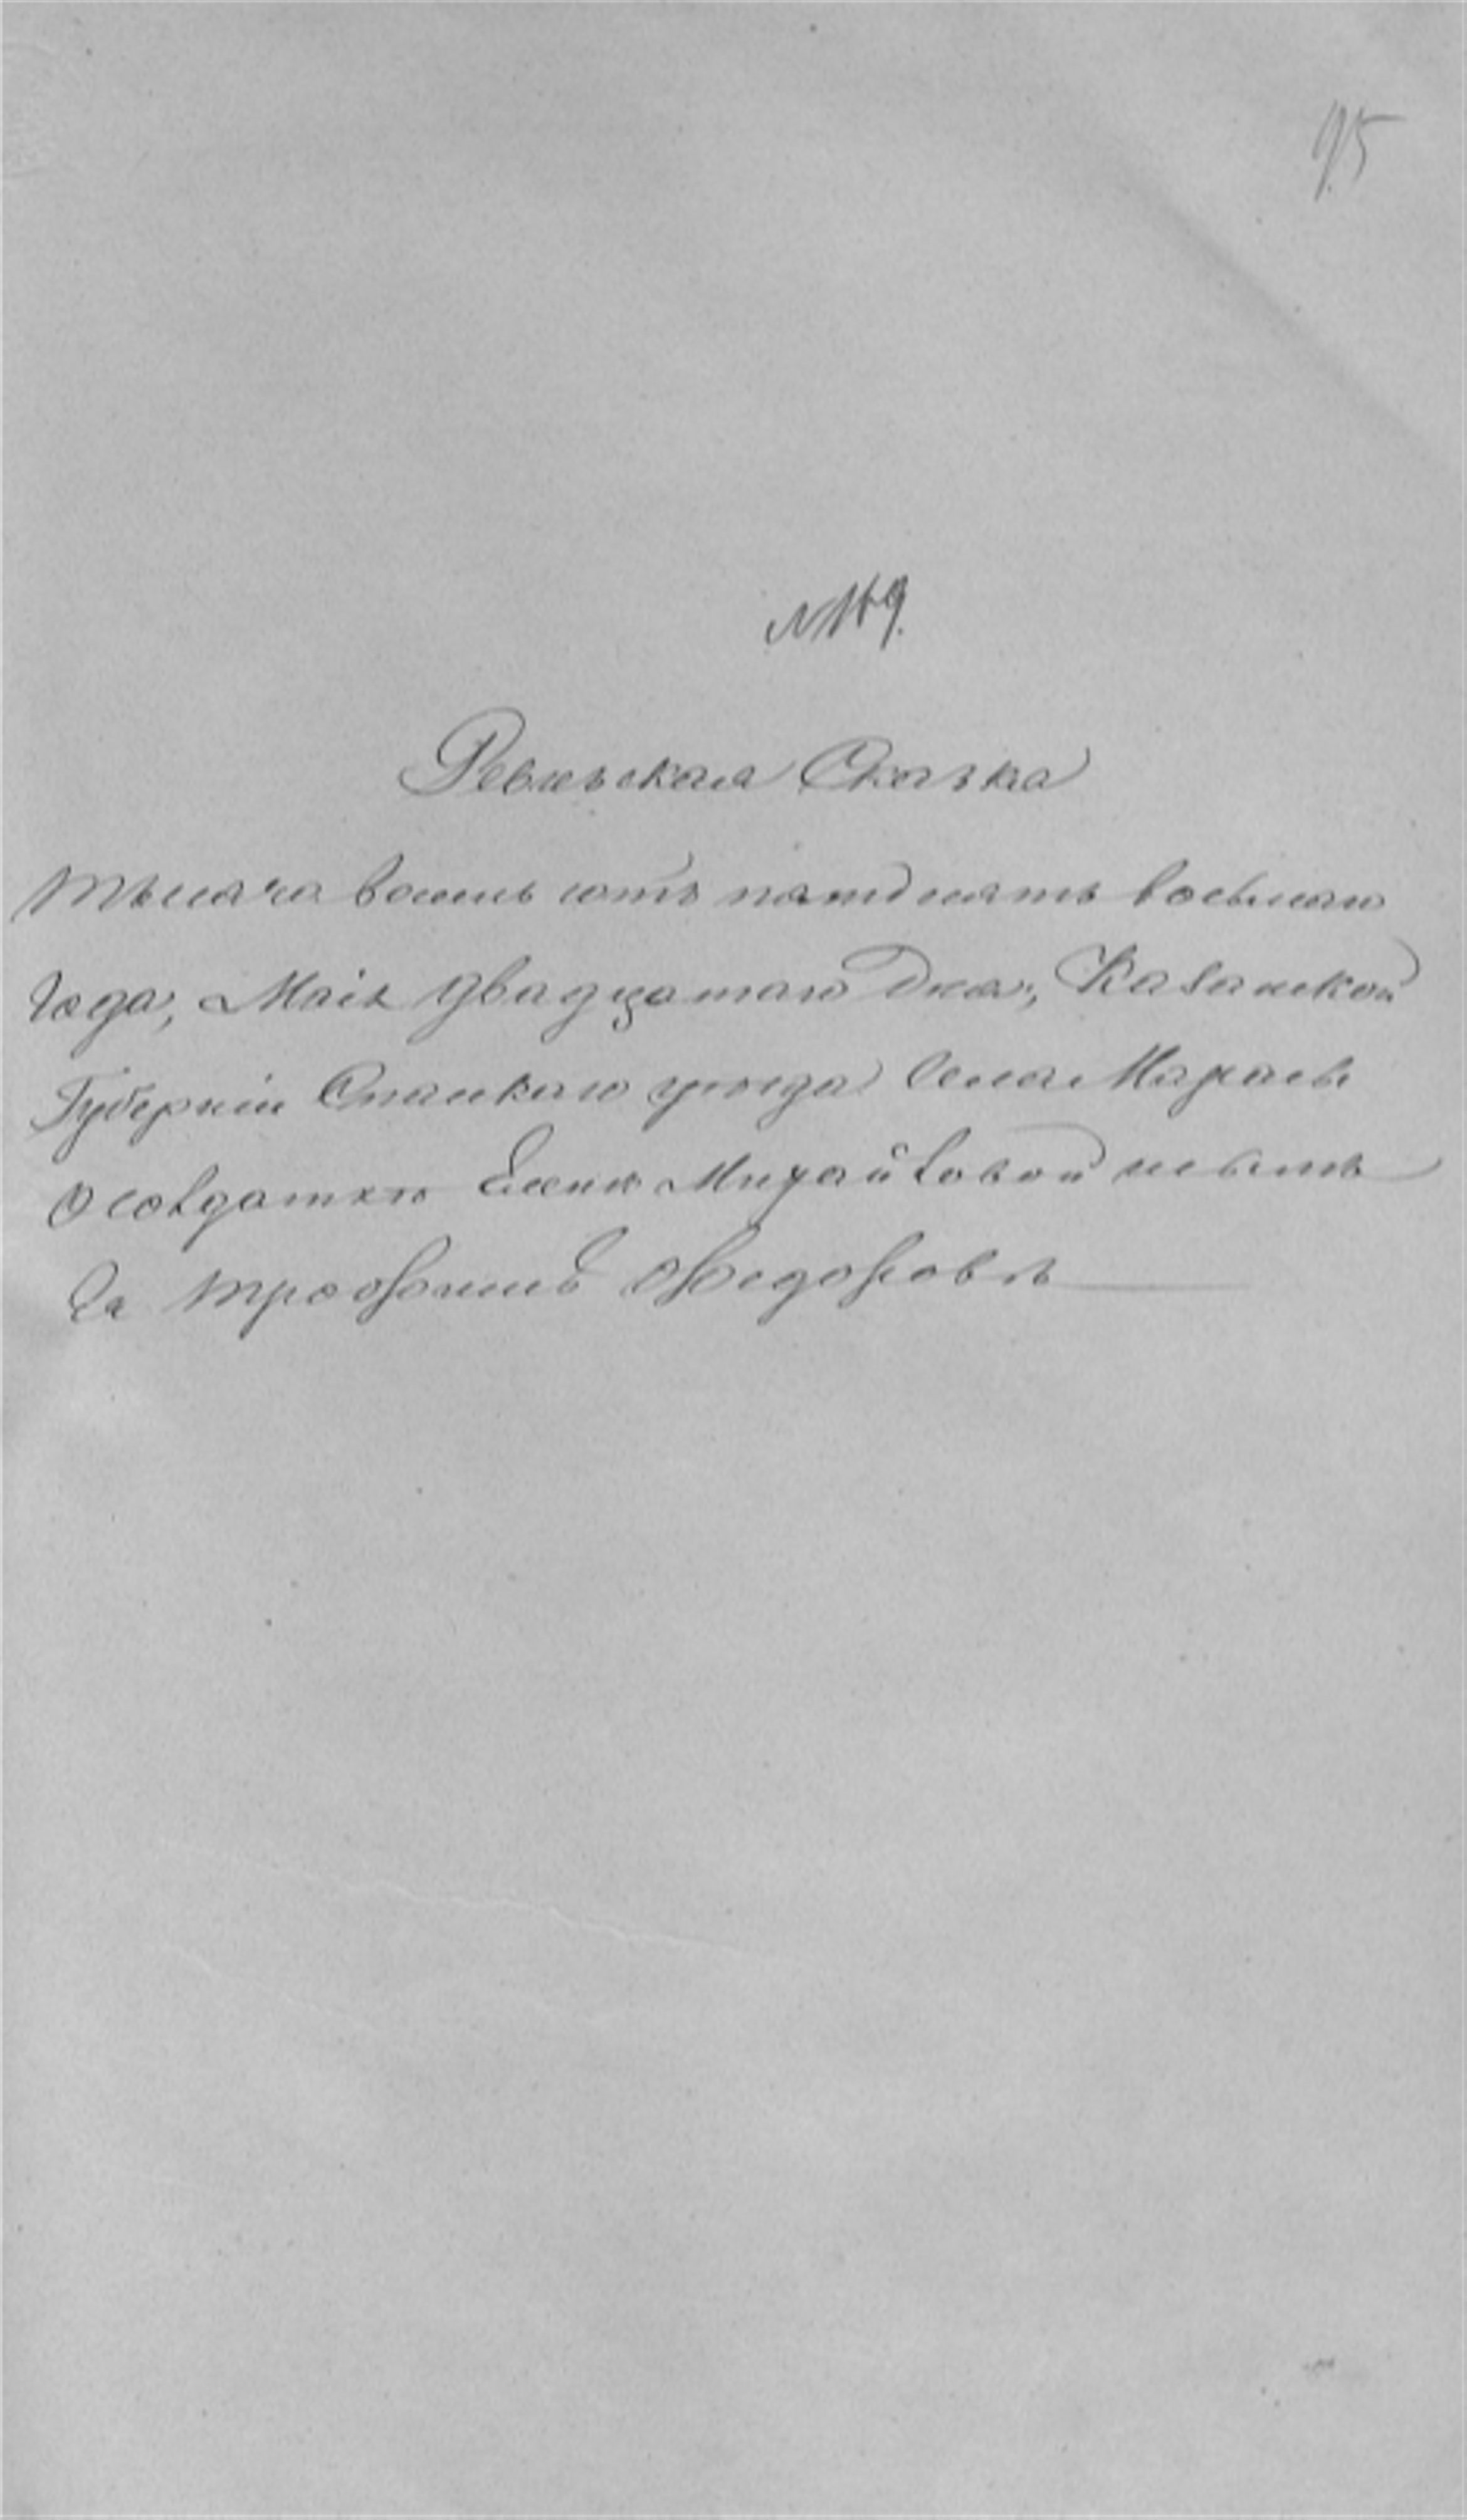 95
№ 119.
Ревизская Сказка
Тысяча восемь сотъ пятдесятъ восьмаго
Года, Маія двадцатаго дня, Казанской
Губерніи Спаскаго уѣзда Села
О солдаткѣ Еленѣ Михайловой
За Трофимомъ Федоровѣ